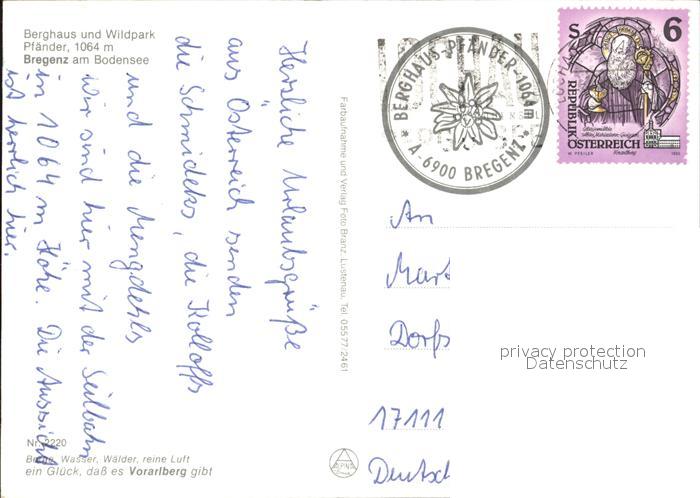 Berghaus und Wildpark
Pfänder, 1064 m
Bregenz am Bodensee
Herzliche Urlaubsgrüße
aus Österreich senden
die Schmidels, die Kolloffs
und die Mengdehls
Wir sind hier mit der Seilbahn
in 1064 m Höhe. Die Aussicht
ist herrlich hier.
Nr. 2220
Berge, Wasser, Wälder, reine Luft
ein Glück, daß es Vorarlberg gibt
Farbaufnahme und Verlag Foto Branz, Lustenau, Tel. 05577/2461
BERGHAUS-PFÄNDER-1064m
A-6900 BREGENZ
S 6
REPUBLIK
ÖSTERREICH
Vorarlberg
An
Mar
Dorfs
17111
Deutsch
privacy protection
Datenschutz